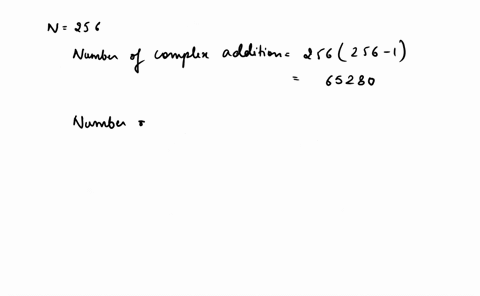 N = 256
Number of complex addition = 256(256-1)
= 65280
Number